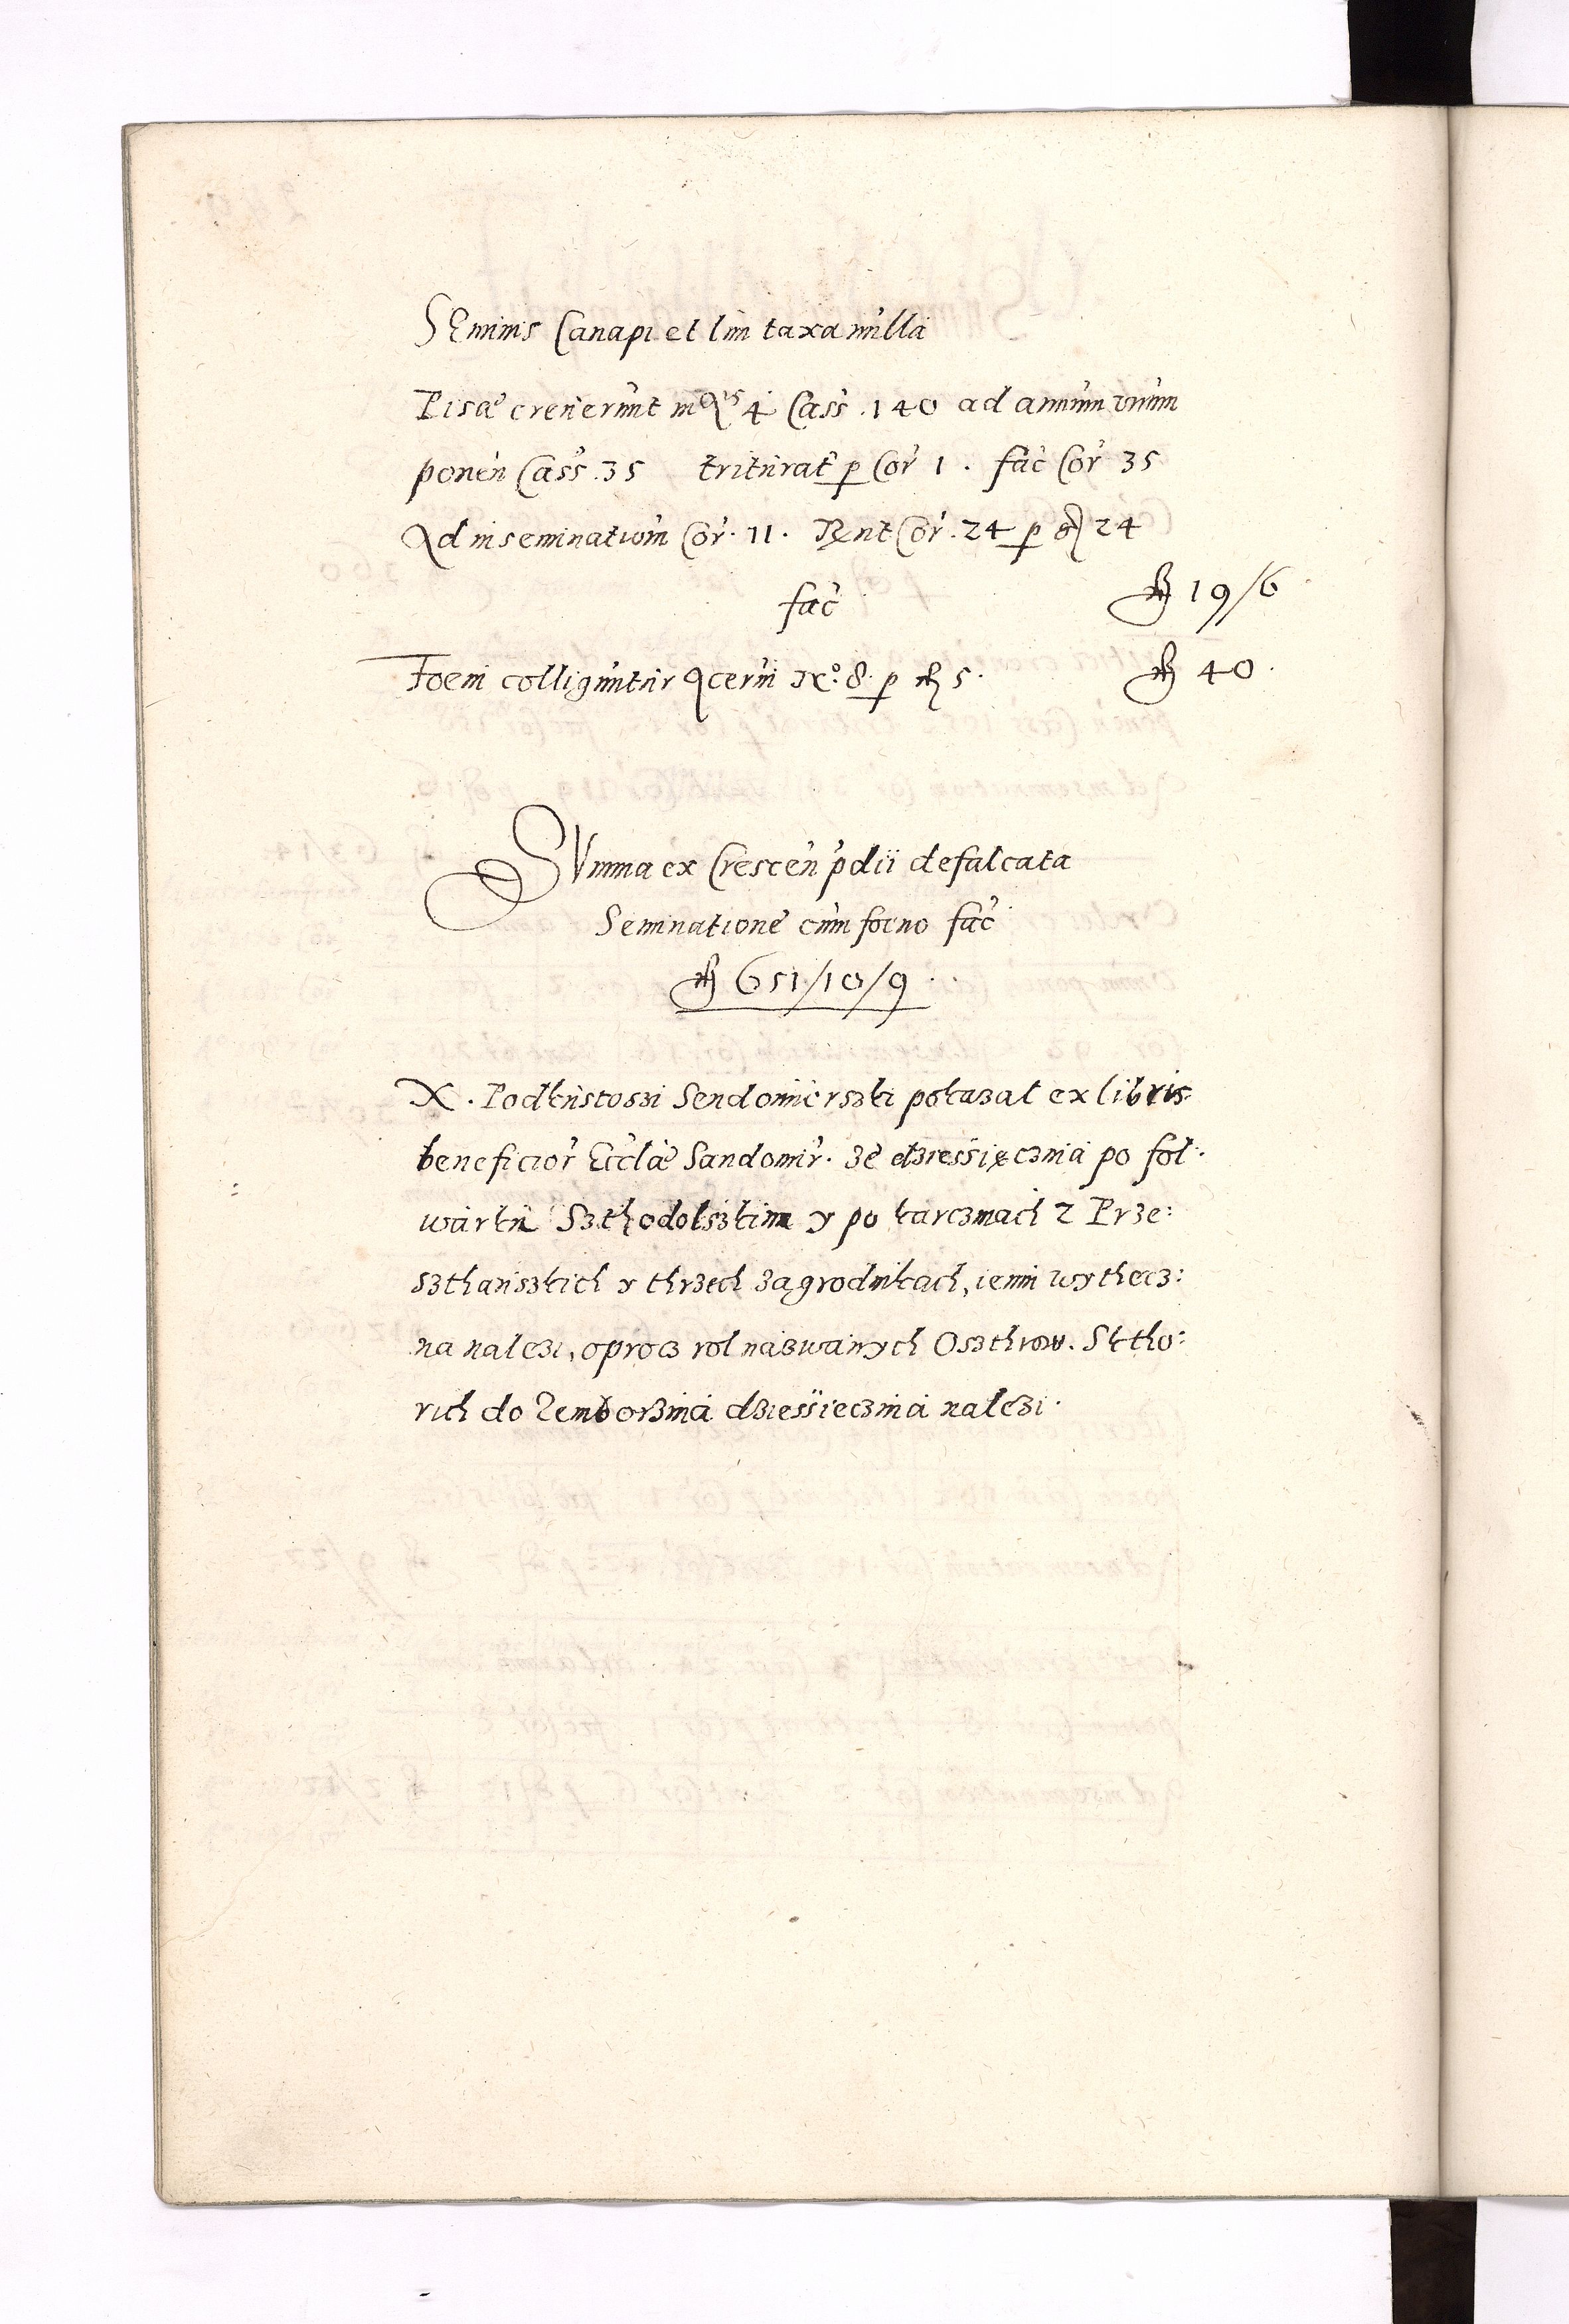 SEminis Canapi et lini taxa nulla
Pisae creuerunt in Q 4 Cass. 140 ad annum unum
ponen Cass. 35 triturat p Cor 1. fac Cor 35
Ad inseminationem Cor. 11. Rent Cor. 24 p g 24
fac fl 19/6
Foeni colliguntur acerui No. 8. p fl 5. fl 40.
SVmma ex Crescen pdii defalcata
Seminatione cum foeno fac
fl 651/10/9.
X. Podkustoszi Sendomierszki pokazal ex libris
beneficior Eccla Sandomir. ze dziessięczina po fol:
warku Szthodolszkim y po karczmach 2 Prze:
szthanszkich y thrzech zagrodnikach, iemu wythecz:
na nalezi, oprocz rol nazwanych Oszthrow. S ktho:
rich do Zemborzina dziessieczina nalezi.